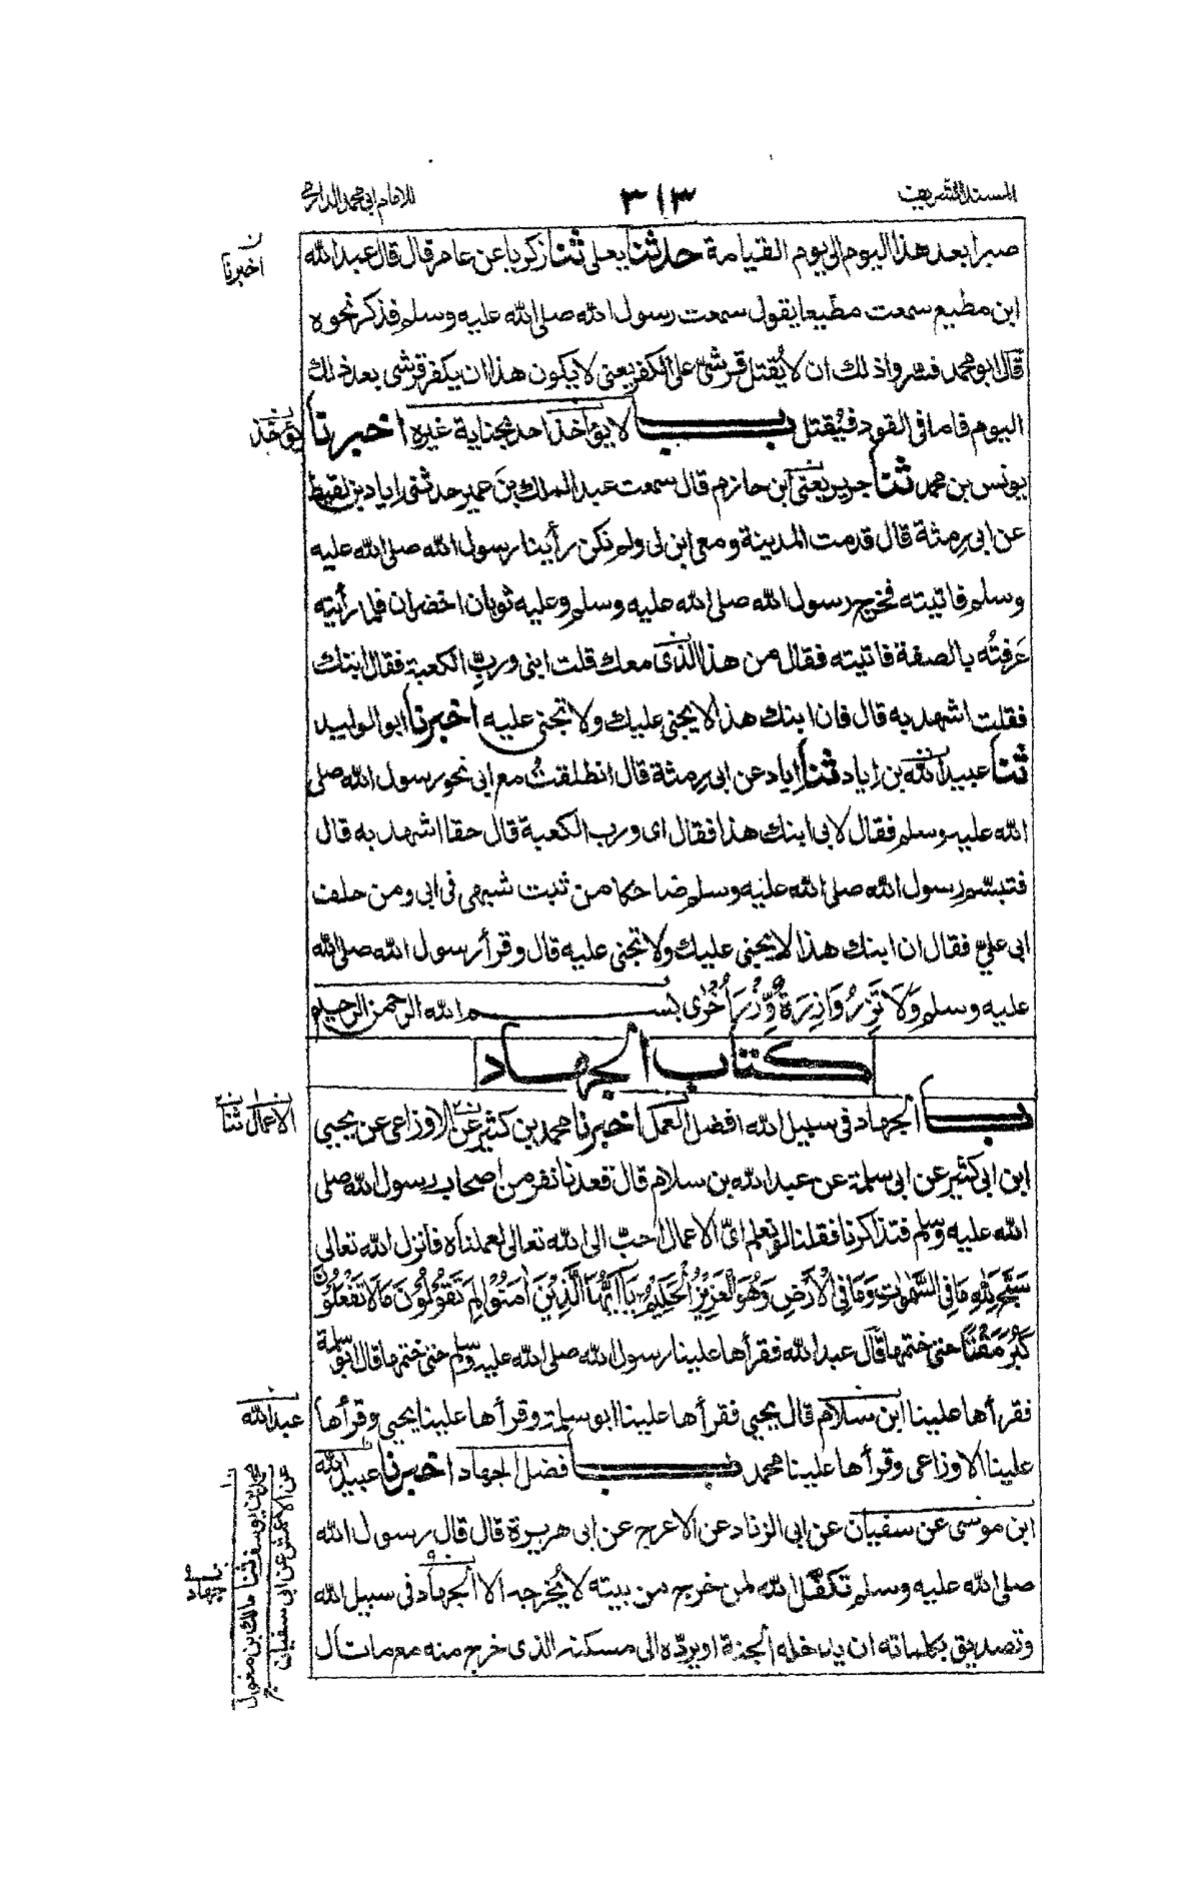 المسند الشريف
٣١٣
للامام ابى محمد الدارمى
صبرا بعد هذا اليوم الى يوم القيامة حدثنا يعلى ثنا زكريا عن عامر قال قال عبد الله
ابن مطيع سمعت مطيعا يقول سمعت رسول الله صلى الله عليه وسلم فذكر نحوه
قال ابو محمد فسّروا ذلك ان لا يُقتل قرشىّ على الكفر يعنى لا يكون هذا ان يكفر قرشى بعد ذلك
اليوم فاما فى القود فيُقتل باب لا يؤاخذ احد بجناية غيره اخبرنا
يونس بن محمد ثنا جرير يعنى ابن حازم قال سمعت عبد الملك بن عمير حدثنى اياد بن لقيط
عن ابى رمثة قال قدمت المدينة ومعى ابن لى ولم نكن رأينا رسول الله صلى الله عليه
وسلم فاتيته فخرج رسول الله صلى الله عليه وسلم وعليه ثوبان اخضران فلما رأيته
عَرَفتُه بالصفة فاتيته فقال من هذا الذى معك قلت ابنى وربِّ الكعبة فقال ابنك
فقلت اشهد به قال فان ابنك هذا لا يجنى عليك ولا تجنى عليه اخبرنا ابو الوليد
ثنا عبيد الله بن اياد ثنا اياد عن ابى رمثة قال انطلقتُ مع ابى نحو رسول الله صلى
الله عليه وسلم فقال لابى ابنك هذا فقال اى ورب الكعبة قال حقا اشهد به قال
فتبسّم رسول الله صلى الله عليه وسلم ضاحكا من ثبت شبهى فى ابى ومن حلف
ابى علىّ فقال ان ابنك هذا لا يجنى عليك ولا تجنى عليه قال وقرأ رسول الله صلى الله
عليه وسلم وَلَا تَزِرُ وَازِرَةٌ وِّزْرَ أُخْرٰى بسم الله الرحمن الرحيم
كتاب الجهاد
باب الجهاد فى سبيل الله افضل العمل اخبرنا محمد بن كثير عن الاوزاعى عن يحيى
ابن ابى كثير عن ابى سلمة عن عبد الله بن سلام قال قعدنا نفر من اصحاب رسول الله صلى
الله عليه وسلم فتذاكرنا فقلنا لو نعلم اىّ الاعمال احبّ الى الله تعالى لعملناه فانزل الله تعالى
سَبَّحَ لِلّٰهِ مَا فِى السَّمٰوٰتِ وَمَا فِى الْاَرْضِ وَهُوَ الْعَزِيْزُ الْحَكِيْمُ يٰٓاَيُّهَا الَّذِيْنَ اٰمَنُوْا لِمَ تَقُوْلُوْنَ مَا لَا تَفْعَلُوْنَ
كَبُرَ مَقْتًا حتى ختمها قال عبد الله فقرأها علينا رسول الله صلى الله عليه وسلم حتى ختمها قال ابو سلمة
فقرأها علينا ابن سلام قال يحيى فقرأها علينا ابو سلمة وقرأها علينا يحيى وقرأها
علينا الاوزاعى وقرأها علينا محمد باب فضل الجهاد اخبرنا عبيد الله
ابن موسى عن سفيان عن ابى الزناد عن الاعرج عن ابى هريرة قال قال رسول الله
صلى الله عليه وسلم تكفّل الله لمن خرج من بيته لا يُخرجه الا الجهاد فى سبيل الله
وتصديق بكلماته ان يدخله الجنة او يردّه الى مسكنه الذى خرج منه مع ما نال
ن
اخبرنا
يؤخذ
الاعمال ثنا
عبد الله
محمد بن يوسف ثنا مالك بن مغول
عن الاعمش عن ابى سفيان
جهاد